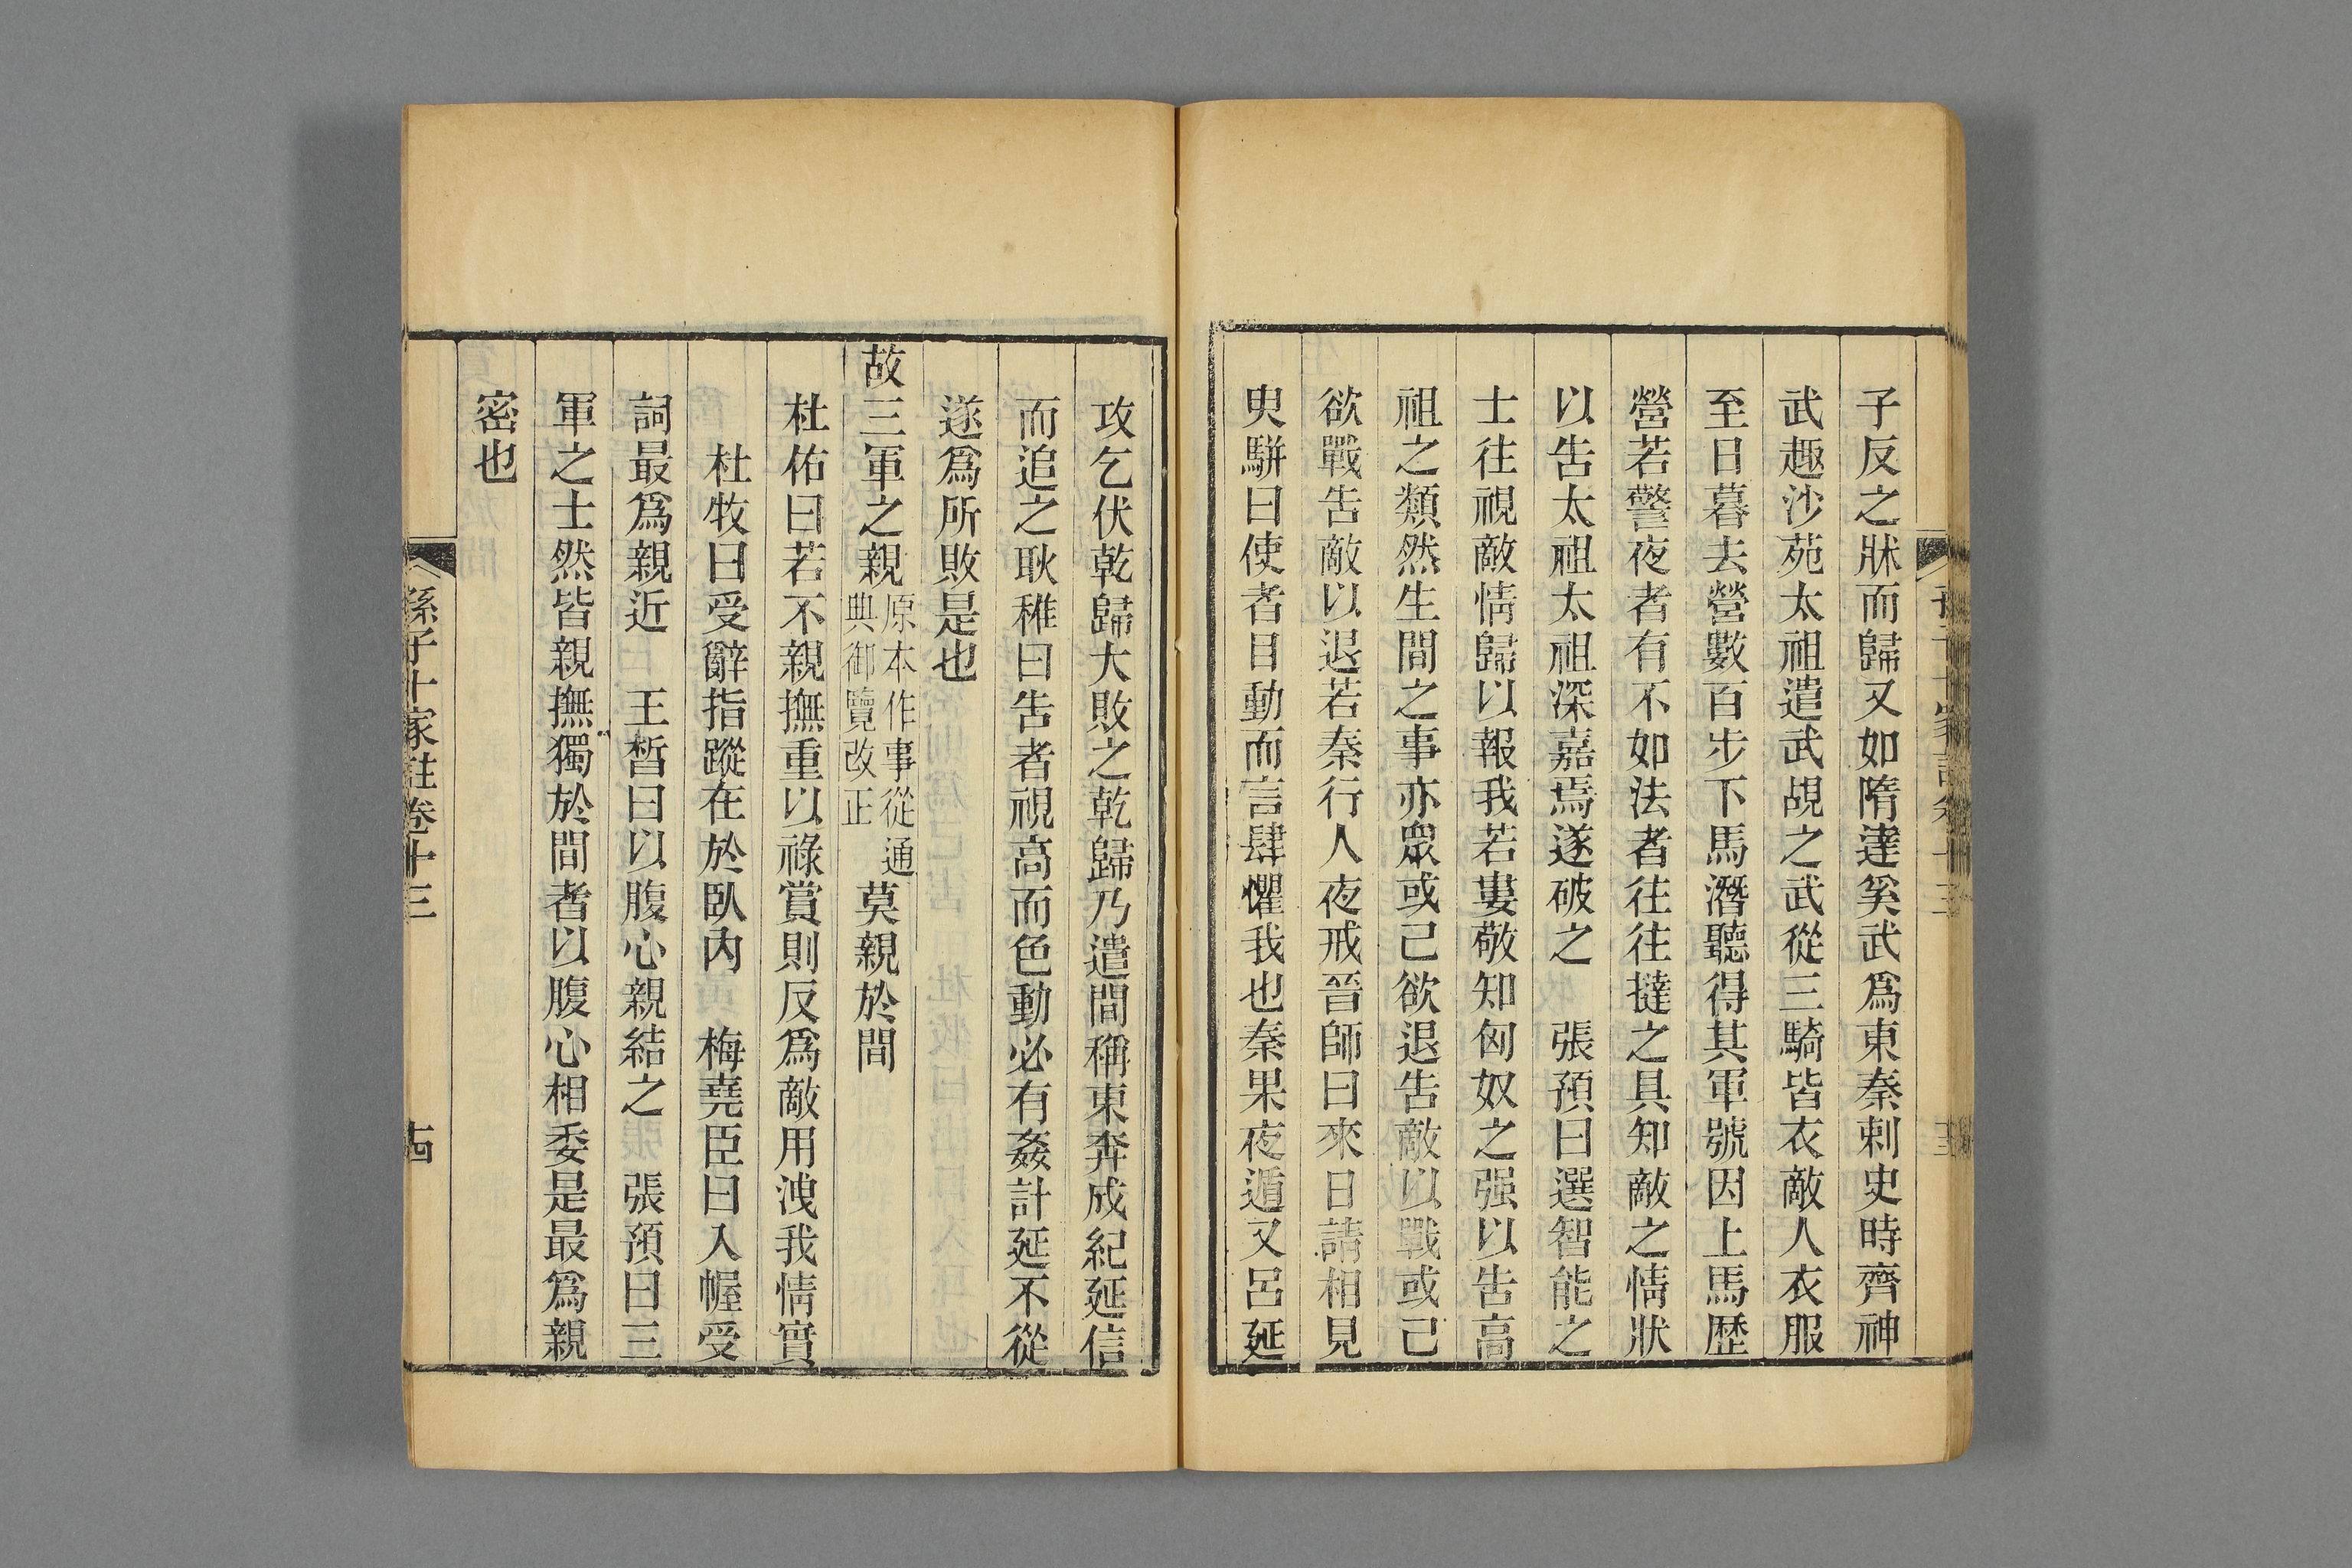 子反之牀而歸又如隋逹奚武爲東秦刺史時齊神
武趣沙苑太祖遣武覘之武從三騎皆衣敵人衣服
至日暮去營數百步下馬潛聽得其軍號因上馬歷
營若警夜者有不如法者往往撻之具知敵之情狀
以告太祖太祖深嘉焉遂破之　張預曰選智能之
士往視敵情歸以報我若婁敬知匈奴之强以告高
祖之類然生間之事亦衆或己欲退告敵以戰或己
欲戰告敵以退若秦行人夜戒晉師曰來日請相見
㬰駢曰使者目動而言肆懼我也秦果夜遁又呂延
攻乞伏乾歸大敗之乾歸乃遣間稱東奔成紀延信
而追之耿稚曰告者視高而色動必有姦計延不從
遂爲所敗是也
故三軍之親原本作事從通典御覽改正莫親於間
杜佑曰若不親撫重以祿賞則反爲敵用洩我情實
杜牧曰受辭指蹤在於臥內　梅堯臣曰入幄受
詞最爲親近　王晳曰以腹心親結之　張預曰三
軍之士然皆親撫獨於間者以腹心相委是最爲親
密也
孫子十家註卷十三
十四